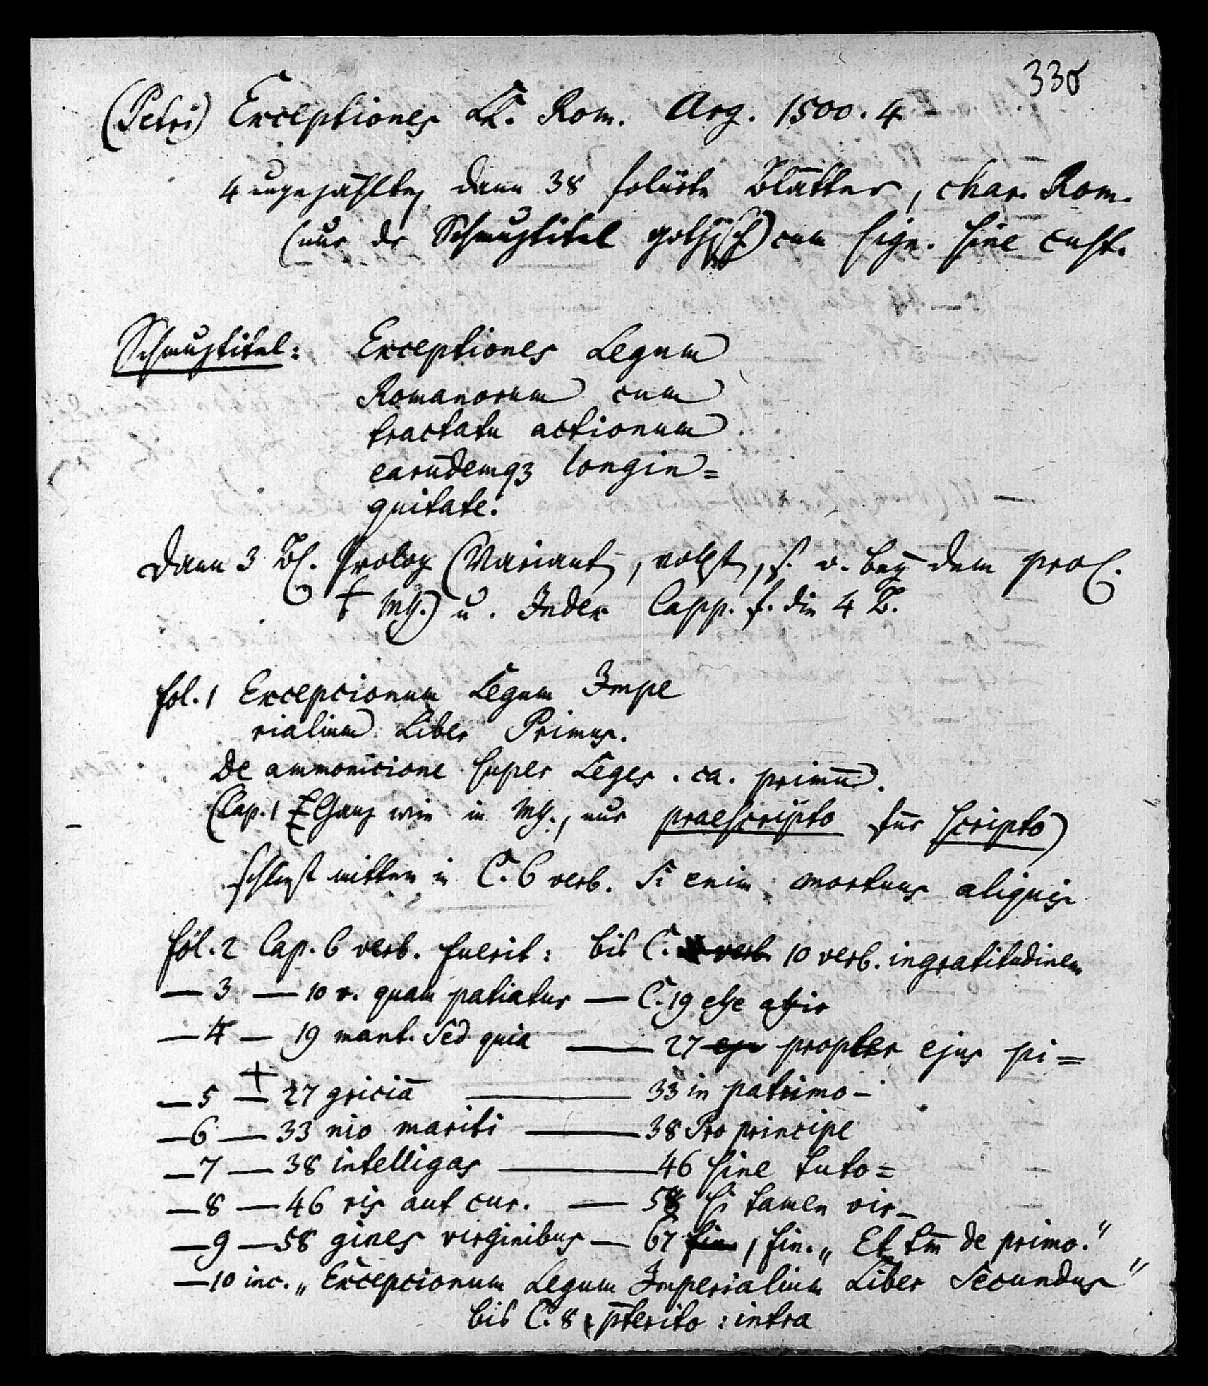 330
(Petri) Exceptiones LL. Rom. Arg. 1500. 4
4 ungezählte, dann 38 foliirte Blätter, char. Rom.
(nur der Schmuztitel gothisch) cum sign. sine cust.
Schmuztitel: Exceptiones Legum
Romanorum cum
tractatu actionum
earūdemqz longin=
quitate.
Dann 3 Bl. Prolog (Variant, s. v. bey dem prol.
† MS.) u. Index Capp. f. die 4 B.
fol. 1 Excepcionum Legum Impe
rialium Liber Primus.
De ammonicione super Leges. ca. primū.
(Cap. 1 Ganz wie in MS., nur praescripto für scripto)
schliest mitten in C. 6 verb. Si enim mortuus aliquis
fol. 2 Cap. 6 verb. fuerit: bis C. 10 verb. ingratitudinem
— 3 — 10 v. quam patiatur — C. 19 esse
— 4 — 19 Sed quia — 27 propter ejus pi=
— 5 — 27 griciā — 33 in patrimo-
— 6 — 33 nio mariti — 38 Pro principe
— 7 — 38 intelligas — 46 sine tuto=
— 8 — 46 ris aut cur. — 58 si tamen vir-
— 9 — 58 gines virginibus — 67 fin. „Et tm̄ de primo."
— 10 inc. „Excepcionum Legum Imperialium Liber Secundus"
bis C. 8 p̄terito: intra